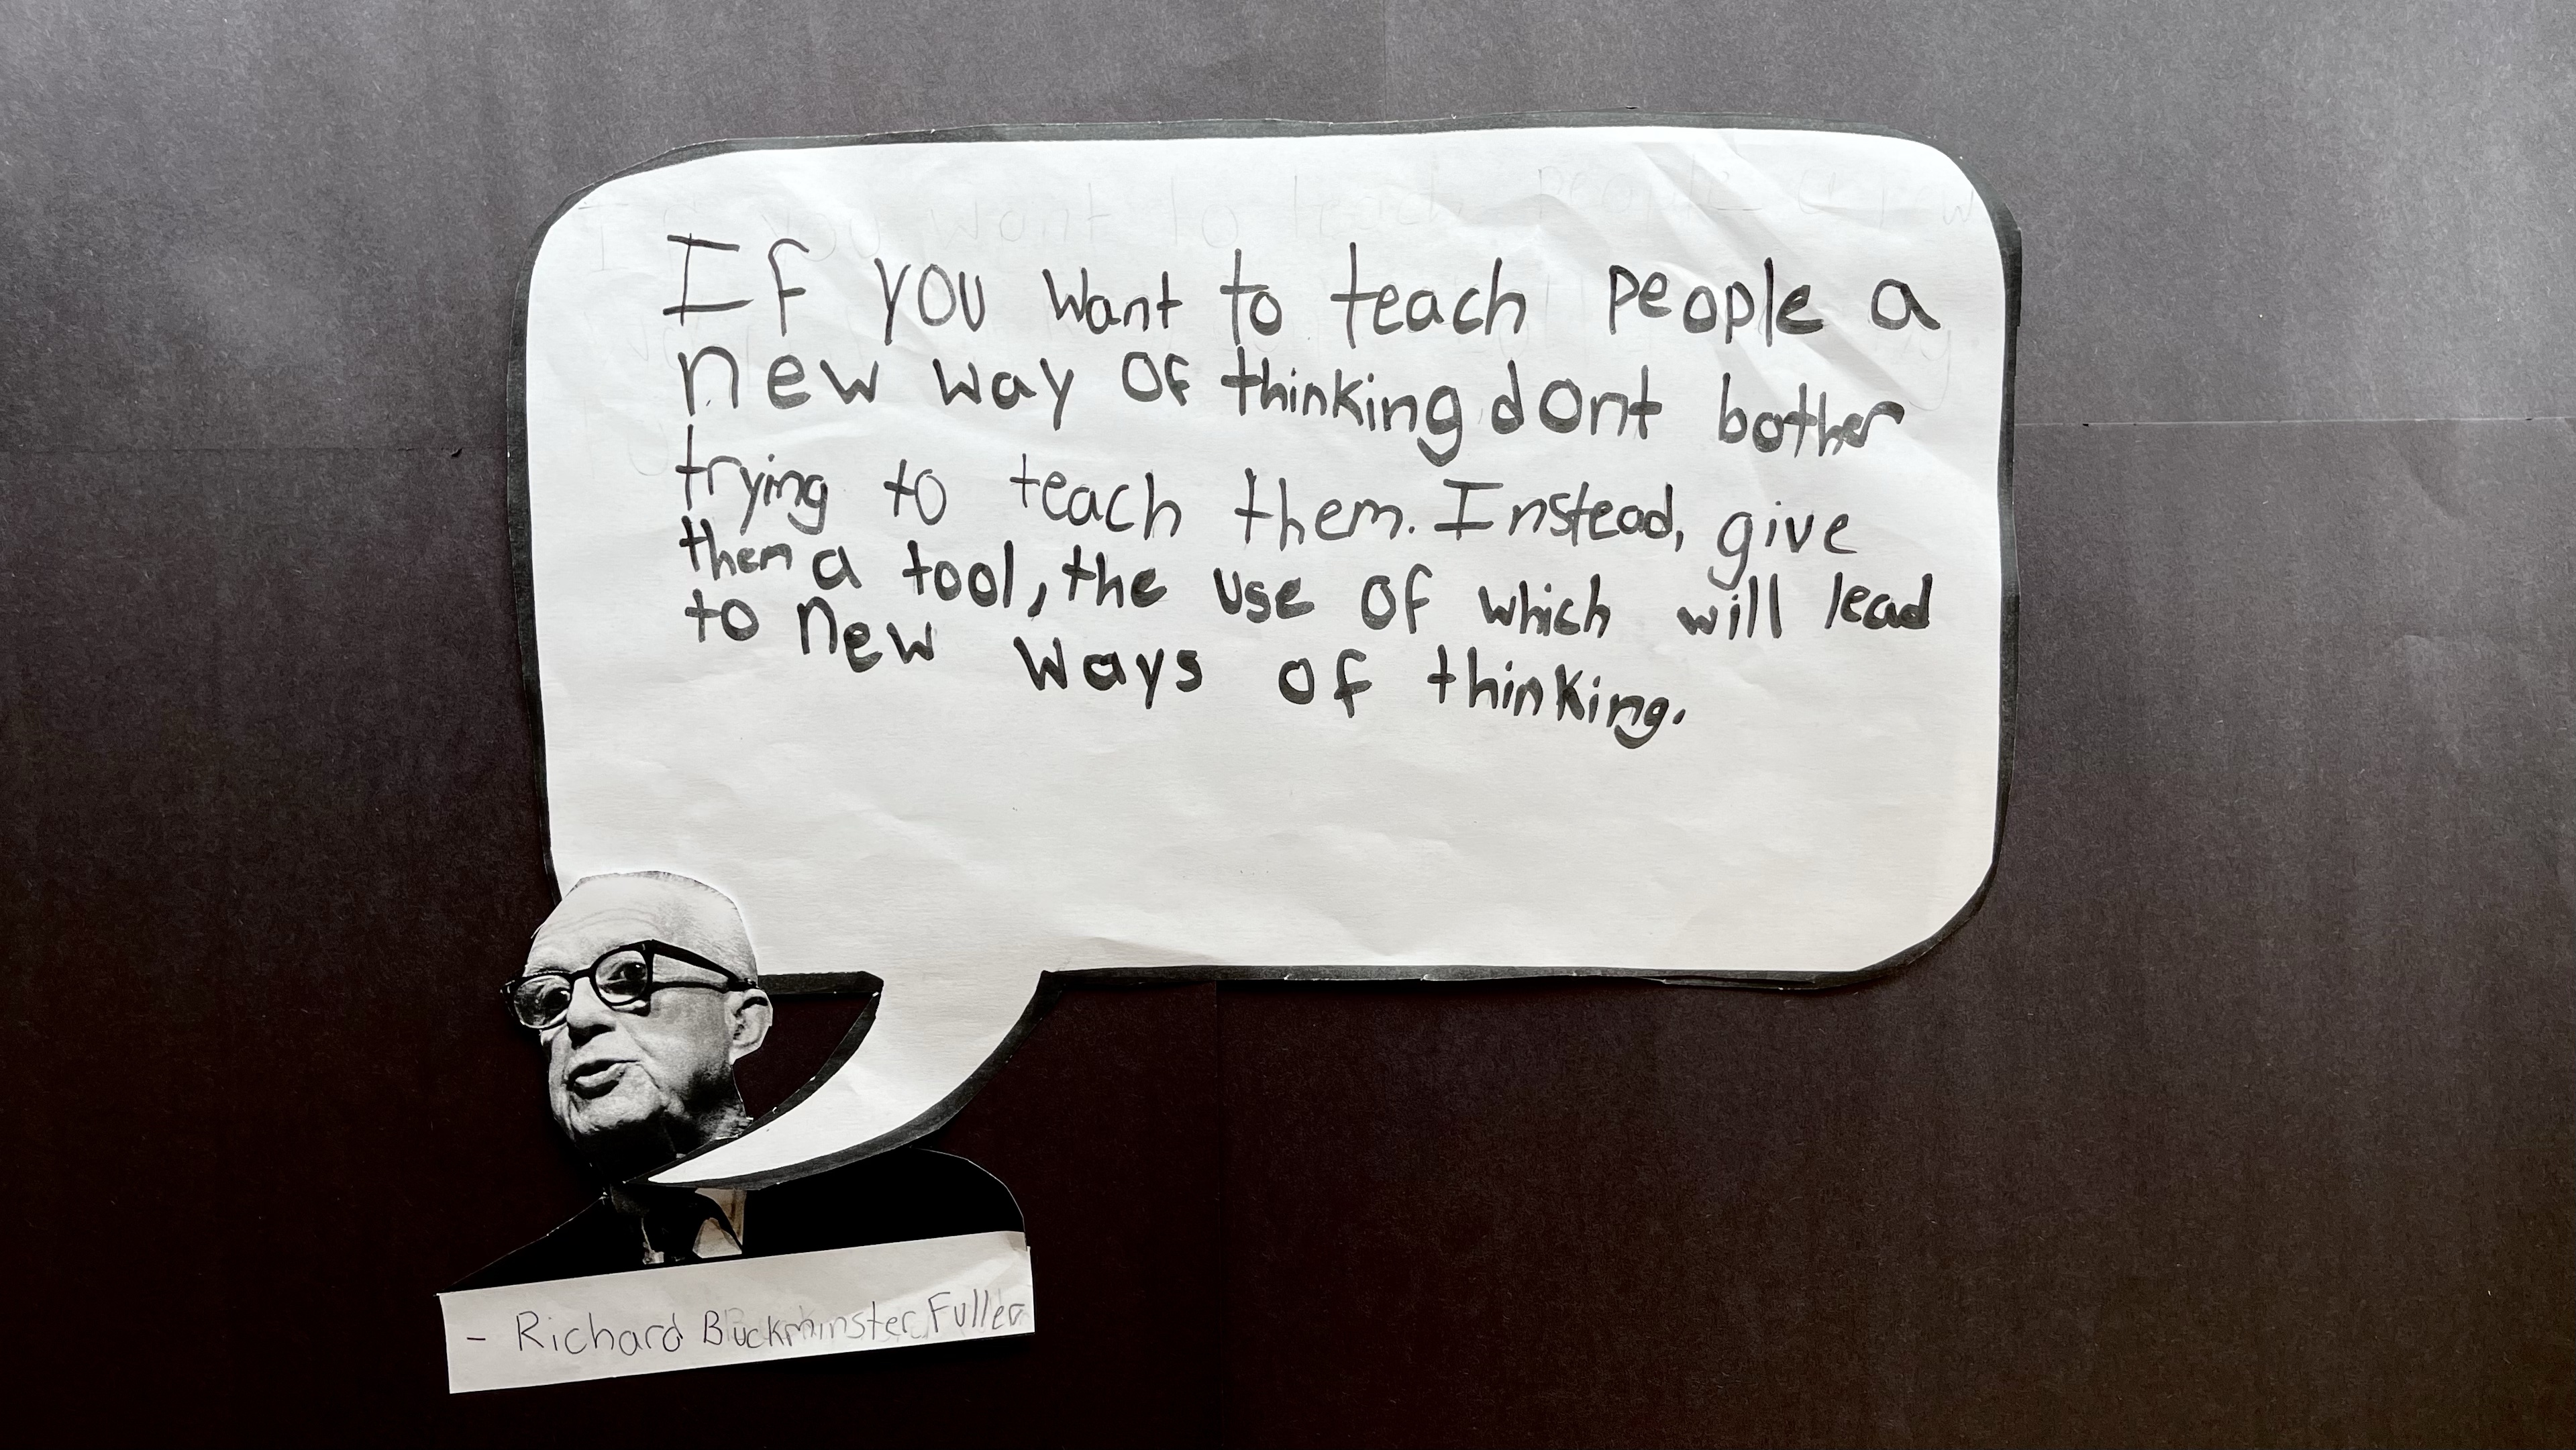 If you want to teach people a
new way of thinking dont bother
trying to teach them. Instead, give
them a tool, the use of which will lead
to new ways of thinking.
- Richard Buckminster Fuller